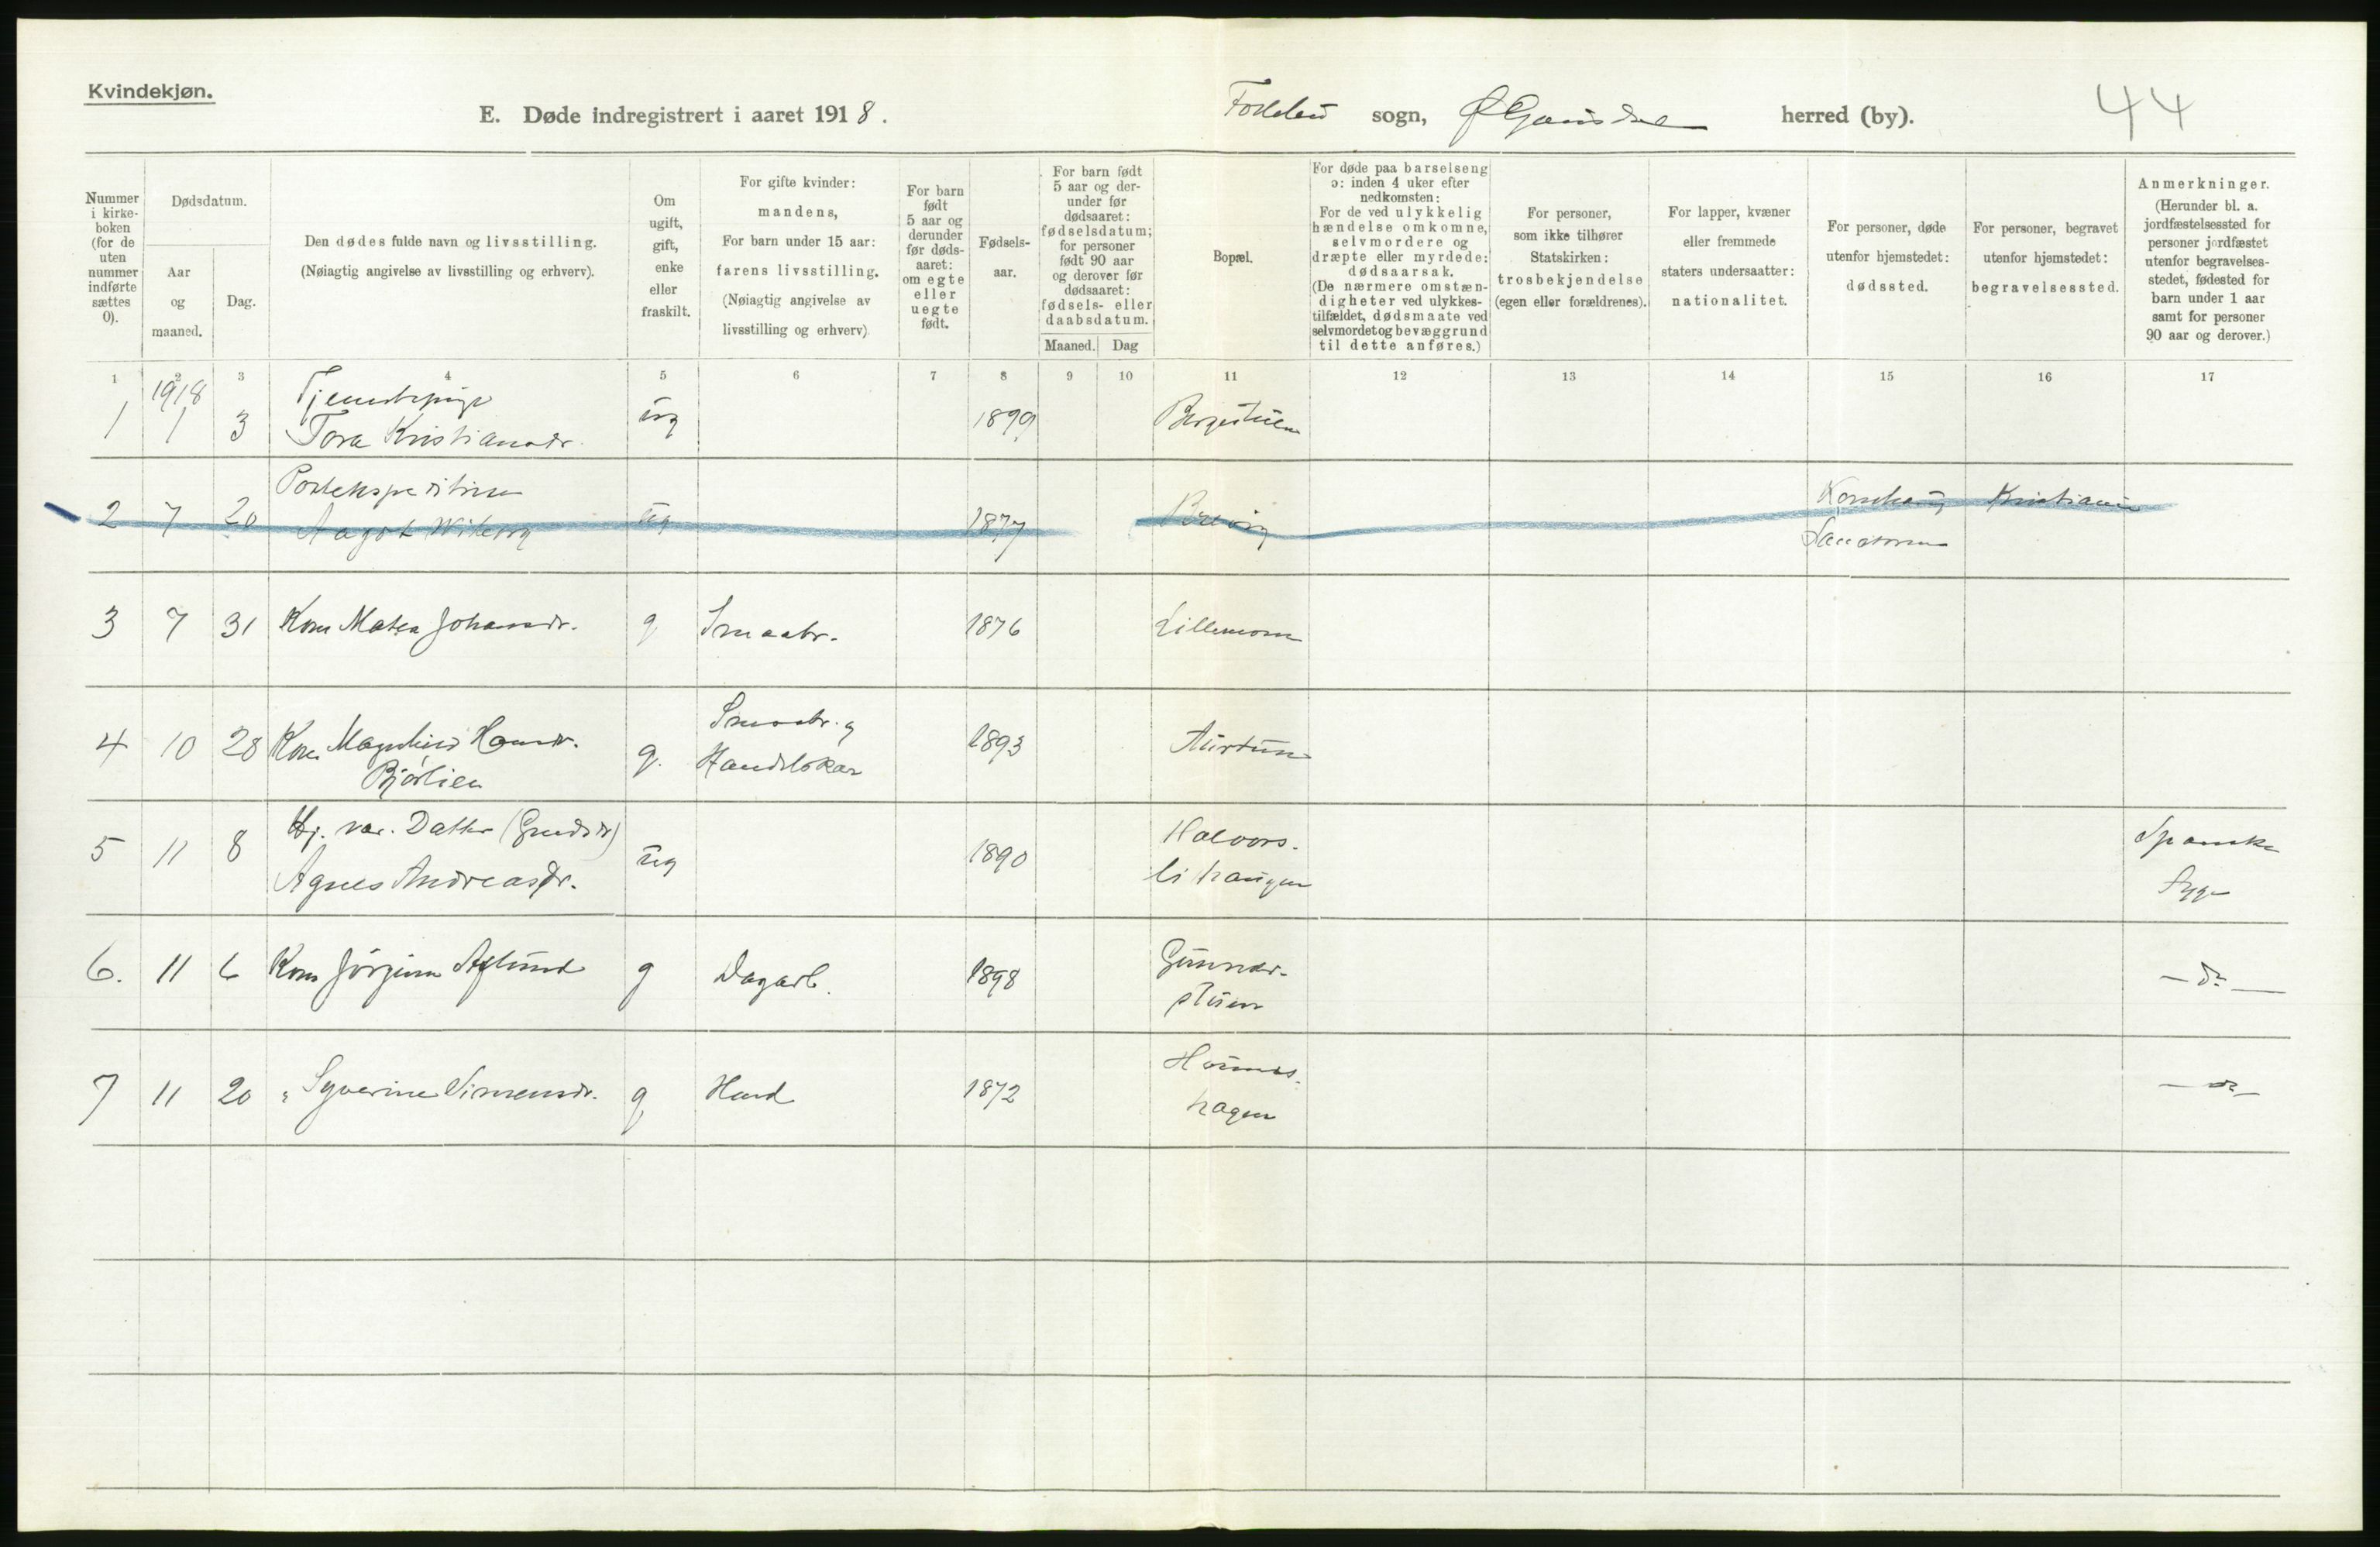 Kvindekjøn.
E. Døde indregistrert i aaret 1918.
sogn, Ø Gausdal herred (by).
44
Nummer i kirkeboken (for de uten nummer indførte sættes 0).
Dødsdatum.
Aar og maaned.
Dag.
Den dødes fulde navn og livsstilling.
(Nøiagtig angivelse av livsstilling og erhverv).
Om ugift, gift, enke eller fraskilt.
For gifte kvinder:
mandens,
For barn under 15 aar:
farens livsstilling.
(Nøiagtig angivelse av
livsstilling og erhverv)
For barn født 5 aar og derunder før dødsaaret: om egte eller uegte født.
Fødselsaar.
For barn født 5 aar og derunder før dødsaaret: fødselsdatum; for personer født 90 aar og derover før dødsaaret: fødsels- eller daabsdatum.
Maaned. Dag
Bopæl.
For døde paa barselseng ɔ: inden 4 uker efter nedkomsten:
For de ved ulykkelig hændelse omkomne, selvmordere og dræpte eller myrdede: dødsaarsak.
(De nærmere omstændigheter ved ulykkestilfældet, dødsmaate ved selvmordet og bevæggrund til dette anføres.)
For personer, som ikke tilhører Statskirken: trosbekjendelse (egen eller forældrenes).
For lapper, kvæner eller fremmede staters undersaatter: nationalitet.
For personer, døde utenfor hjemstedet: dødssted.
For personer, begravet utenfor hjemstedet: begravelsessted.
Anmerkninger.
(Herunder bl. a. jordfæstelsessted for personer jordfæstet utenfor begravelsesstedet, fødested for barn under 1 aar samt for personer 90 aar og derover.)
1 2 3 4 5 6 7 8 9 10 11 12 13 14 15 16 17
1918 Tjenestepige
1 1 3 Tora Kristiansdr. ug 1899
2 7 20 Aagot Wiberg ug 1877 Kornhaug Kristiania
Sanatorium
3 7 31 Kone Matea Johansdr. g Smaabr. 1876 Lillemoen
Smaabr. og
4 10 28 Kone Hansdr. g. Handelskar 1893
Bjørlien
Hj. vær. Datter Halvors- Spanske
5 11 8 Agnes Andreasdr. ug 1890 lihaugen Syge
6. 11 6 Kone Jørgine g Dagarb. 1898 Gunnar- — do —
stuen
7 11 20 " Syverine Simensdr. g Husmd 1872 — do —
hagen